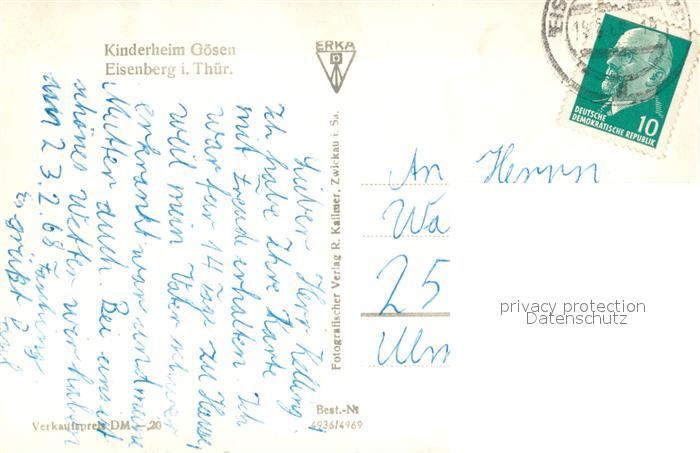 Kinderheim Gösen
Eisenberg i. Thür.
ERKA
DEUTSCHE
DEMOKRATISCHE REPUBLIK
10
Lieber Herr
Ich habe Ihre Karte
mit Freude erhalten. Ich
war für 14 Tage zu Hause,
weil mein Vater schwer
erkrankt war und meine
Mutter auch. Bei uns ist
schönes Wetter wir haben
am 23.2.68 Fasching
Es grüßt
Fotografischer Verlag R. Kallmer, Zwickau i. Sa.
An Herrn
Wa
25
Ulm
privacy protection
Datenschutz
Verkaufspreis DM —,20
Best.-Nr
4936/4969